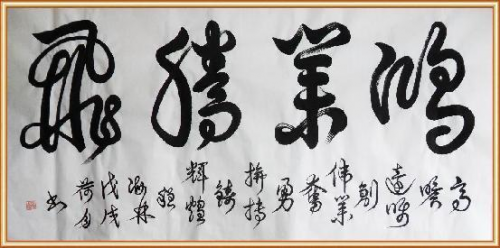 鴻業騰飛
高
瞻
遠矚
創
偉業
奮
勇
拼搏
鑄
輝煌
林
戊戌
荷月
书